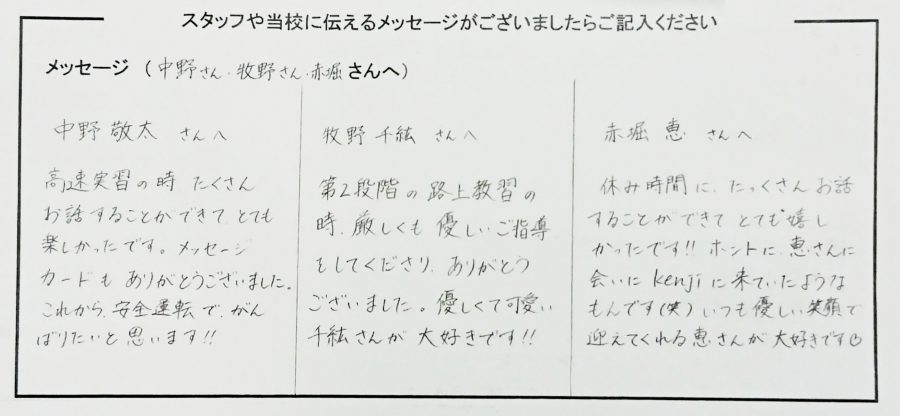 スタッフや当校に伝えるメッセージがございましたらご記入ください
メッセージ (中野さん・牧野さん・赤堀さんへ)
中野 敬太 さんへ
高速実習の時 たくさん
お話することができて、とても
楽しかったです。メッセージ
カードも ありがとうございました。
これから、安全運転で、がん
ばりたいと思います!!
牧野 千紘 さんへ
第2段階の路上教習の
時、厳しくも 優しいご指導
をしてくださり、ありがとう
ございました。優しくて可愛い
千紘さんが 大好きです!!
赤堀 恵 さんへ
休み時間に、たっくさん お話
することができて とても 嬉し
かったです!! ホントに、恵さんに
会いに kenjiに来ていたような
もんです(笑) いつも優しい笑顔で
迎えてくれる恵さんが 大好きです